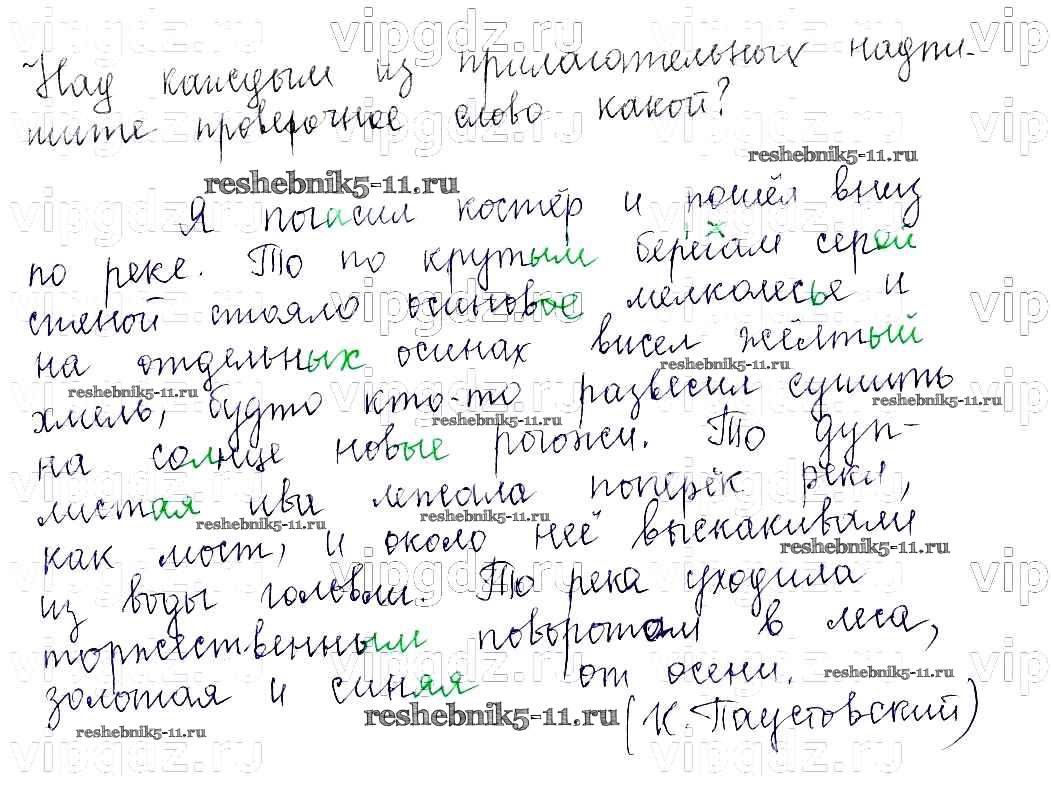 Над каждым из прилагательных надпи-
шите проверочное слово какой?
Я погасил костёр и пошёл вниз
х
по реке. То по крутым берегам серой
стеной стояло осиновое мелколесье и
на отдельных осинах висел жёлтый
хмель, будто кто-то развесил сушить
на солнце новые рогожи. То дуп-
листая ива лежала поперёк реки,
как мост, и около неё выскакивали
из воды головли. То река уходила
торжественным поворотом в леса,
золотая и синяя от осени.
(К. Паустовский)
reshebnik5-11.ru
reshebnik5-11.ru
reshebnik5-11.ru
reshebnik5-11.ru
reshebnik5-11.ru
reshebnik5-11.ru
reshebnik5-11.ru
reshebnik5-11.ru
reshebnik5-11.ru
reshebnik5-11.ru
reshebnik5-11.ru
reshebnik5-11.ru
vipgdz.ru